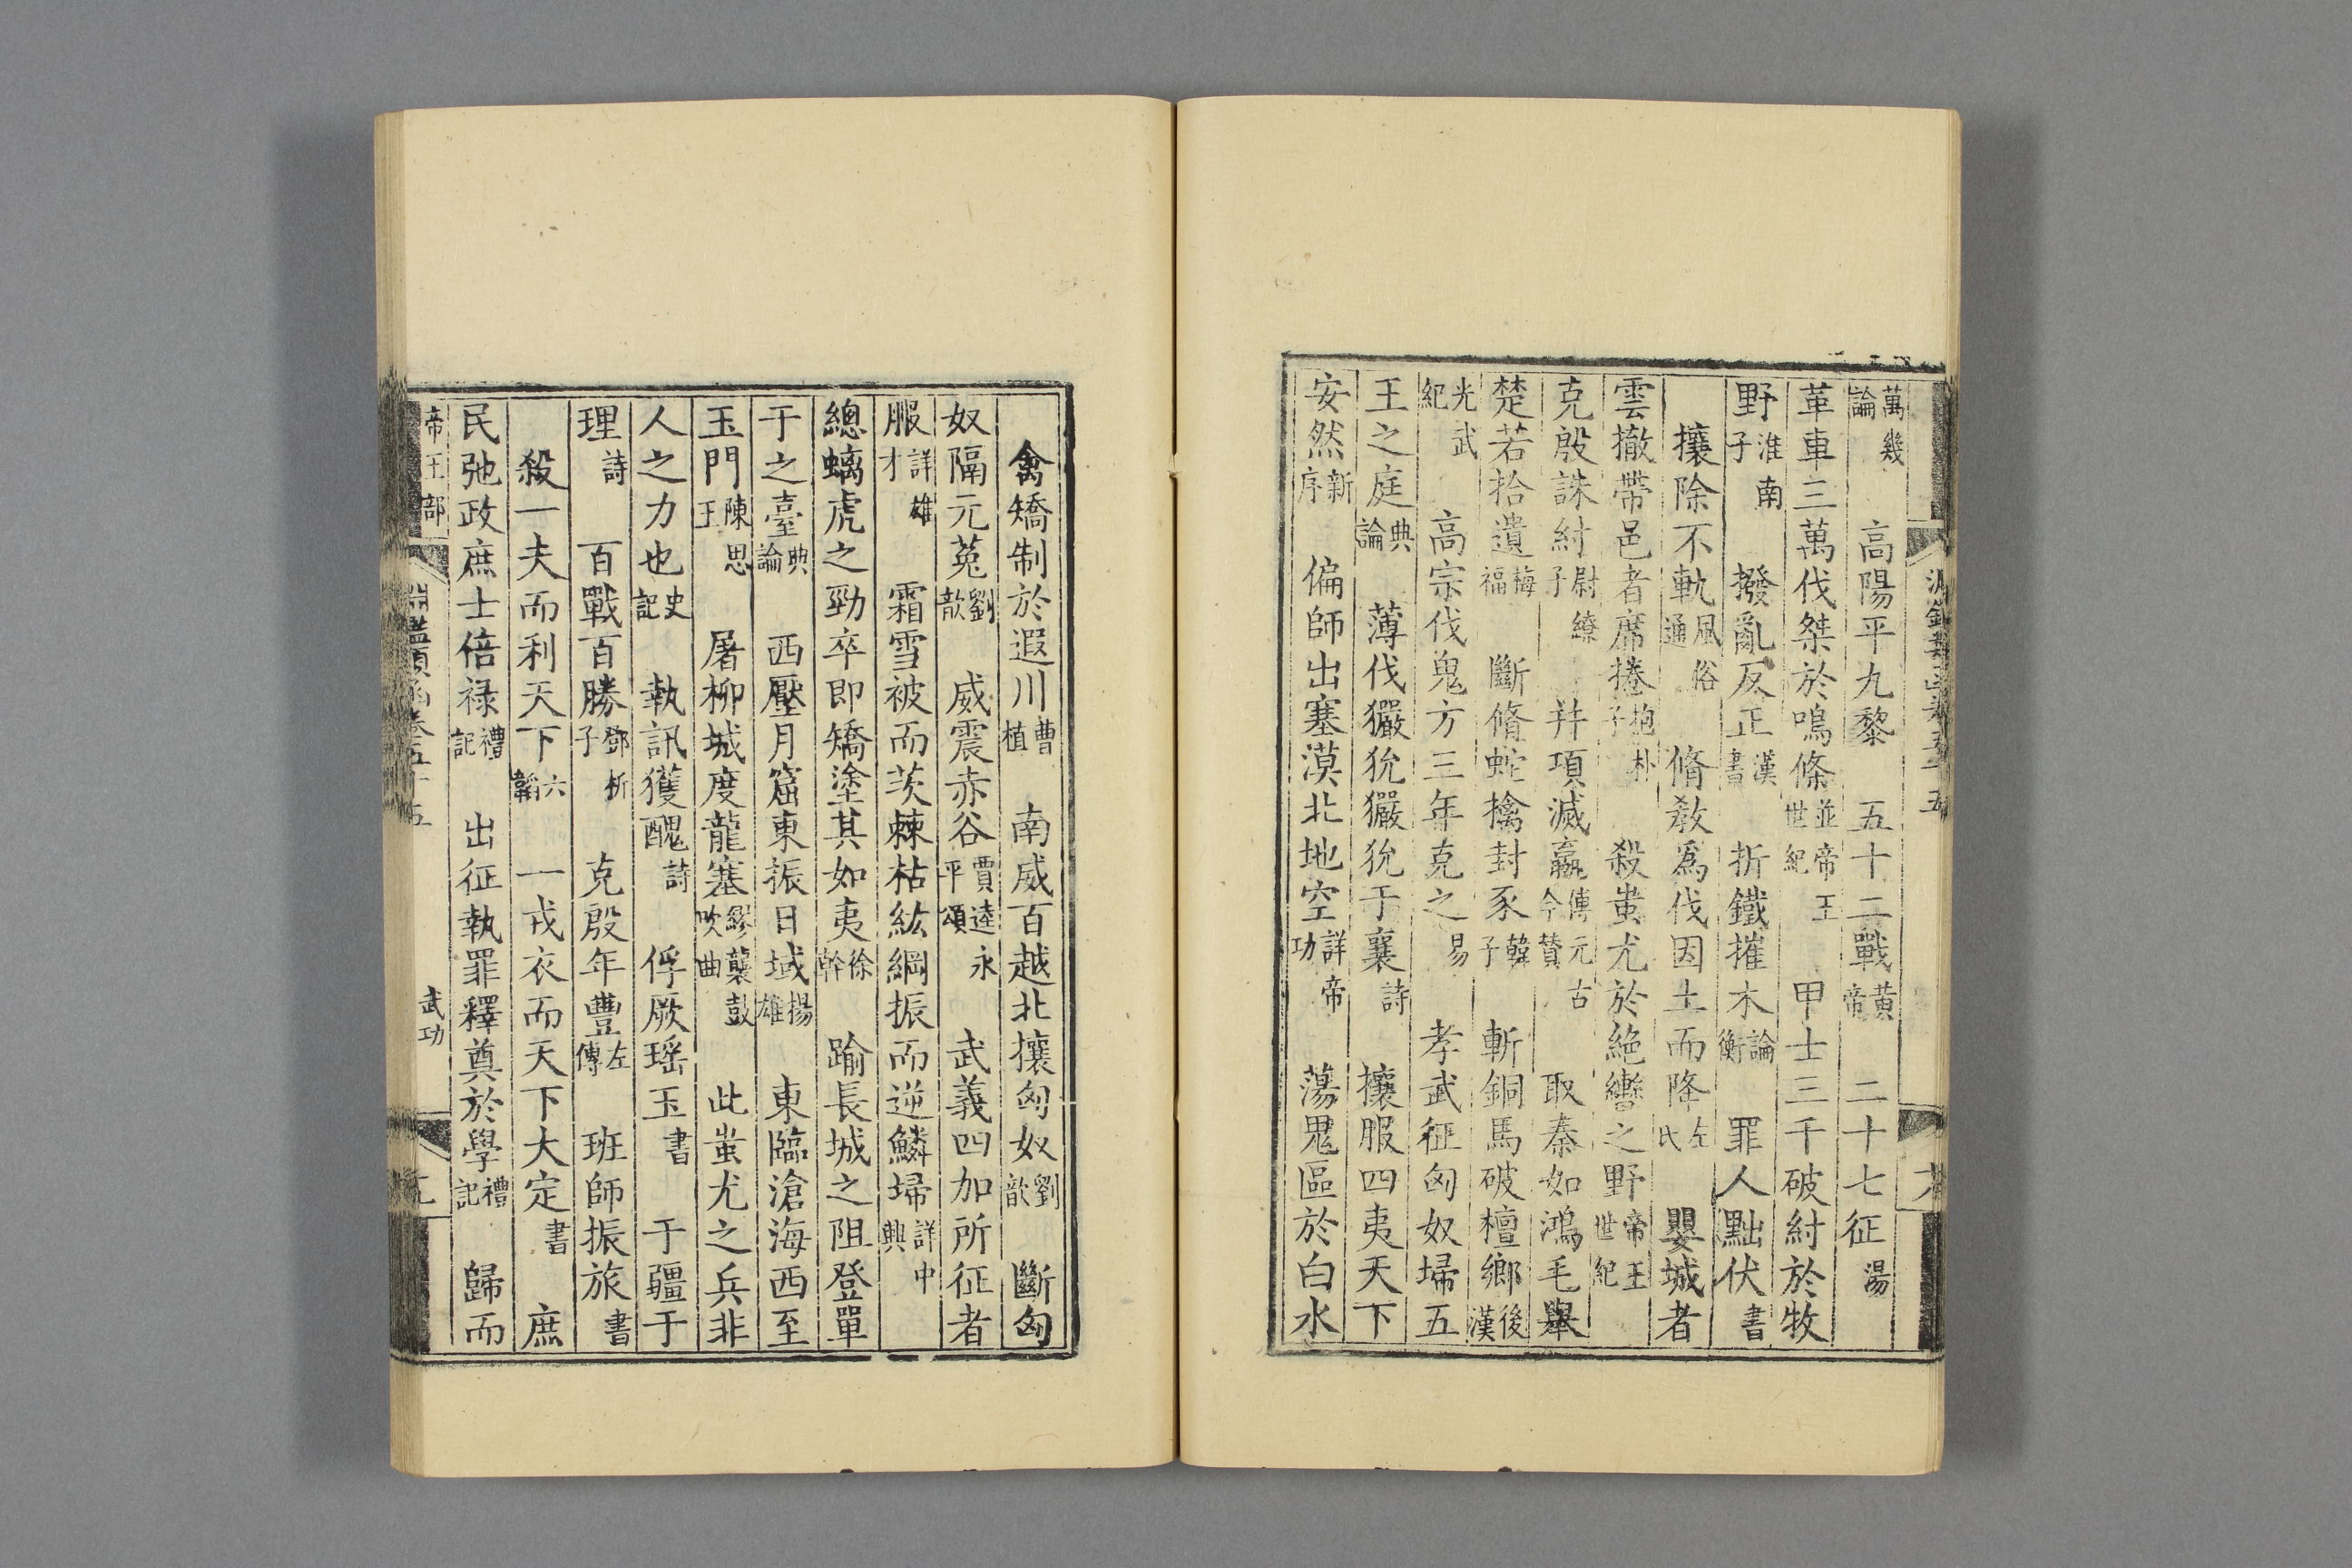 萬幾論　高陽平九黎　五十二戰黃帝　二十七征湯
革車三萬伐桀於鳴條並帝王世紀　甲士三千破紂於牧
野淮南子　撥亂反正漢書　折鐵摧木論衡　罪人黜伏書
攘除不軌風俗通　脩教爲伐因土而降左氏　嬰城者
雲撤帶邑者席捲抱朴子　殺蚩尤於絕轡之野帝王世紀
克殷誅紂尉繚子　并項滅嬴傅元古今贊　取秦如鴻毛舉
楚若拾遺梅福　斷脩蛇擒封豕韓子　斬銅馬破檀鄉後漢
光武紀　高宗伐鬼方三年克之易　孝武征匈奴埽五
王之庭典論　薄伐玁狁玁狁于襄詩　攘服四夷天下
安然新序　偏師出塞漠北地空詳帝功　蕩鬼區於白水
禽矯制於遐川曹植　南威百越北攘匈奴劉歆　斷匈
奴隔元菟劉歆　威震赤谷賈逵永平頌　武義四加所征者
服詳雄才　霜雪被而茨棘枯紘綱振而逆鱗埽詳中興
總螭虎之勁卒即矯塗其如夷徐幹　踰長城之阻登單
于之臺典論　西壓月窟東振日域揚雄　東臨滄海西至
玉門陳思王　屠柳城度龍塞繆襲鼓吹曲　此蚩尤之兵非
人之力也史記　執訊獲醜詩　俘厥瑶玉書　于疆于
理詩　百戰百勝鄧析子　克殷年豐左傳　班師振旅書
殺一夫而利天下六韜　一戎衣而天下大定書　庶
民弛政庶士倍祿禮記　出征執罪釋奠於學禮記　歸而
帝王部　淵鑑類函卷五十五　武功